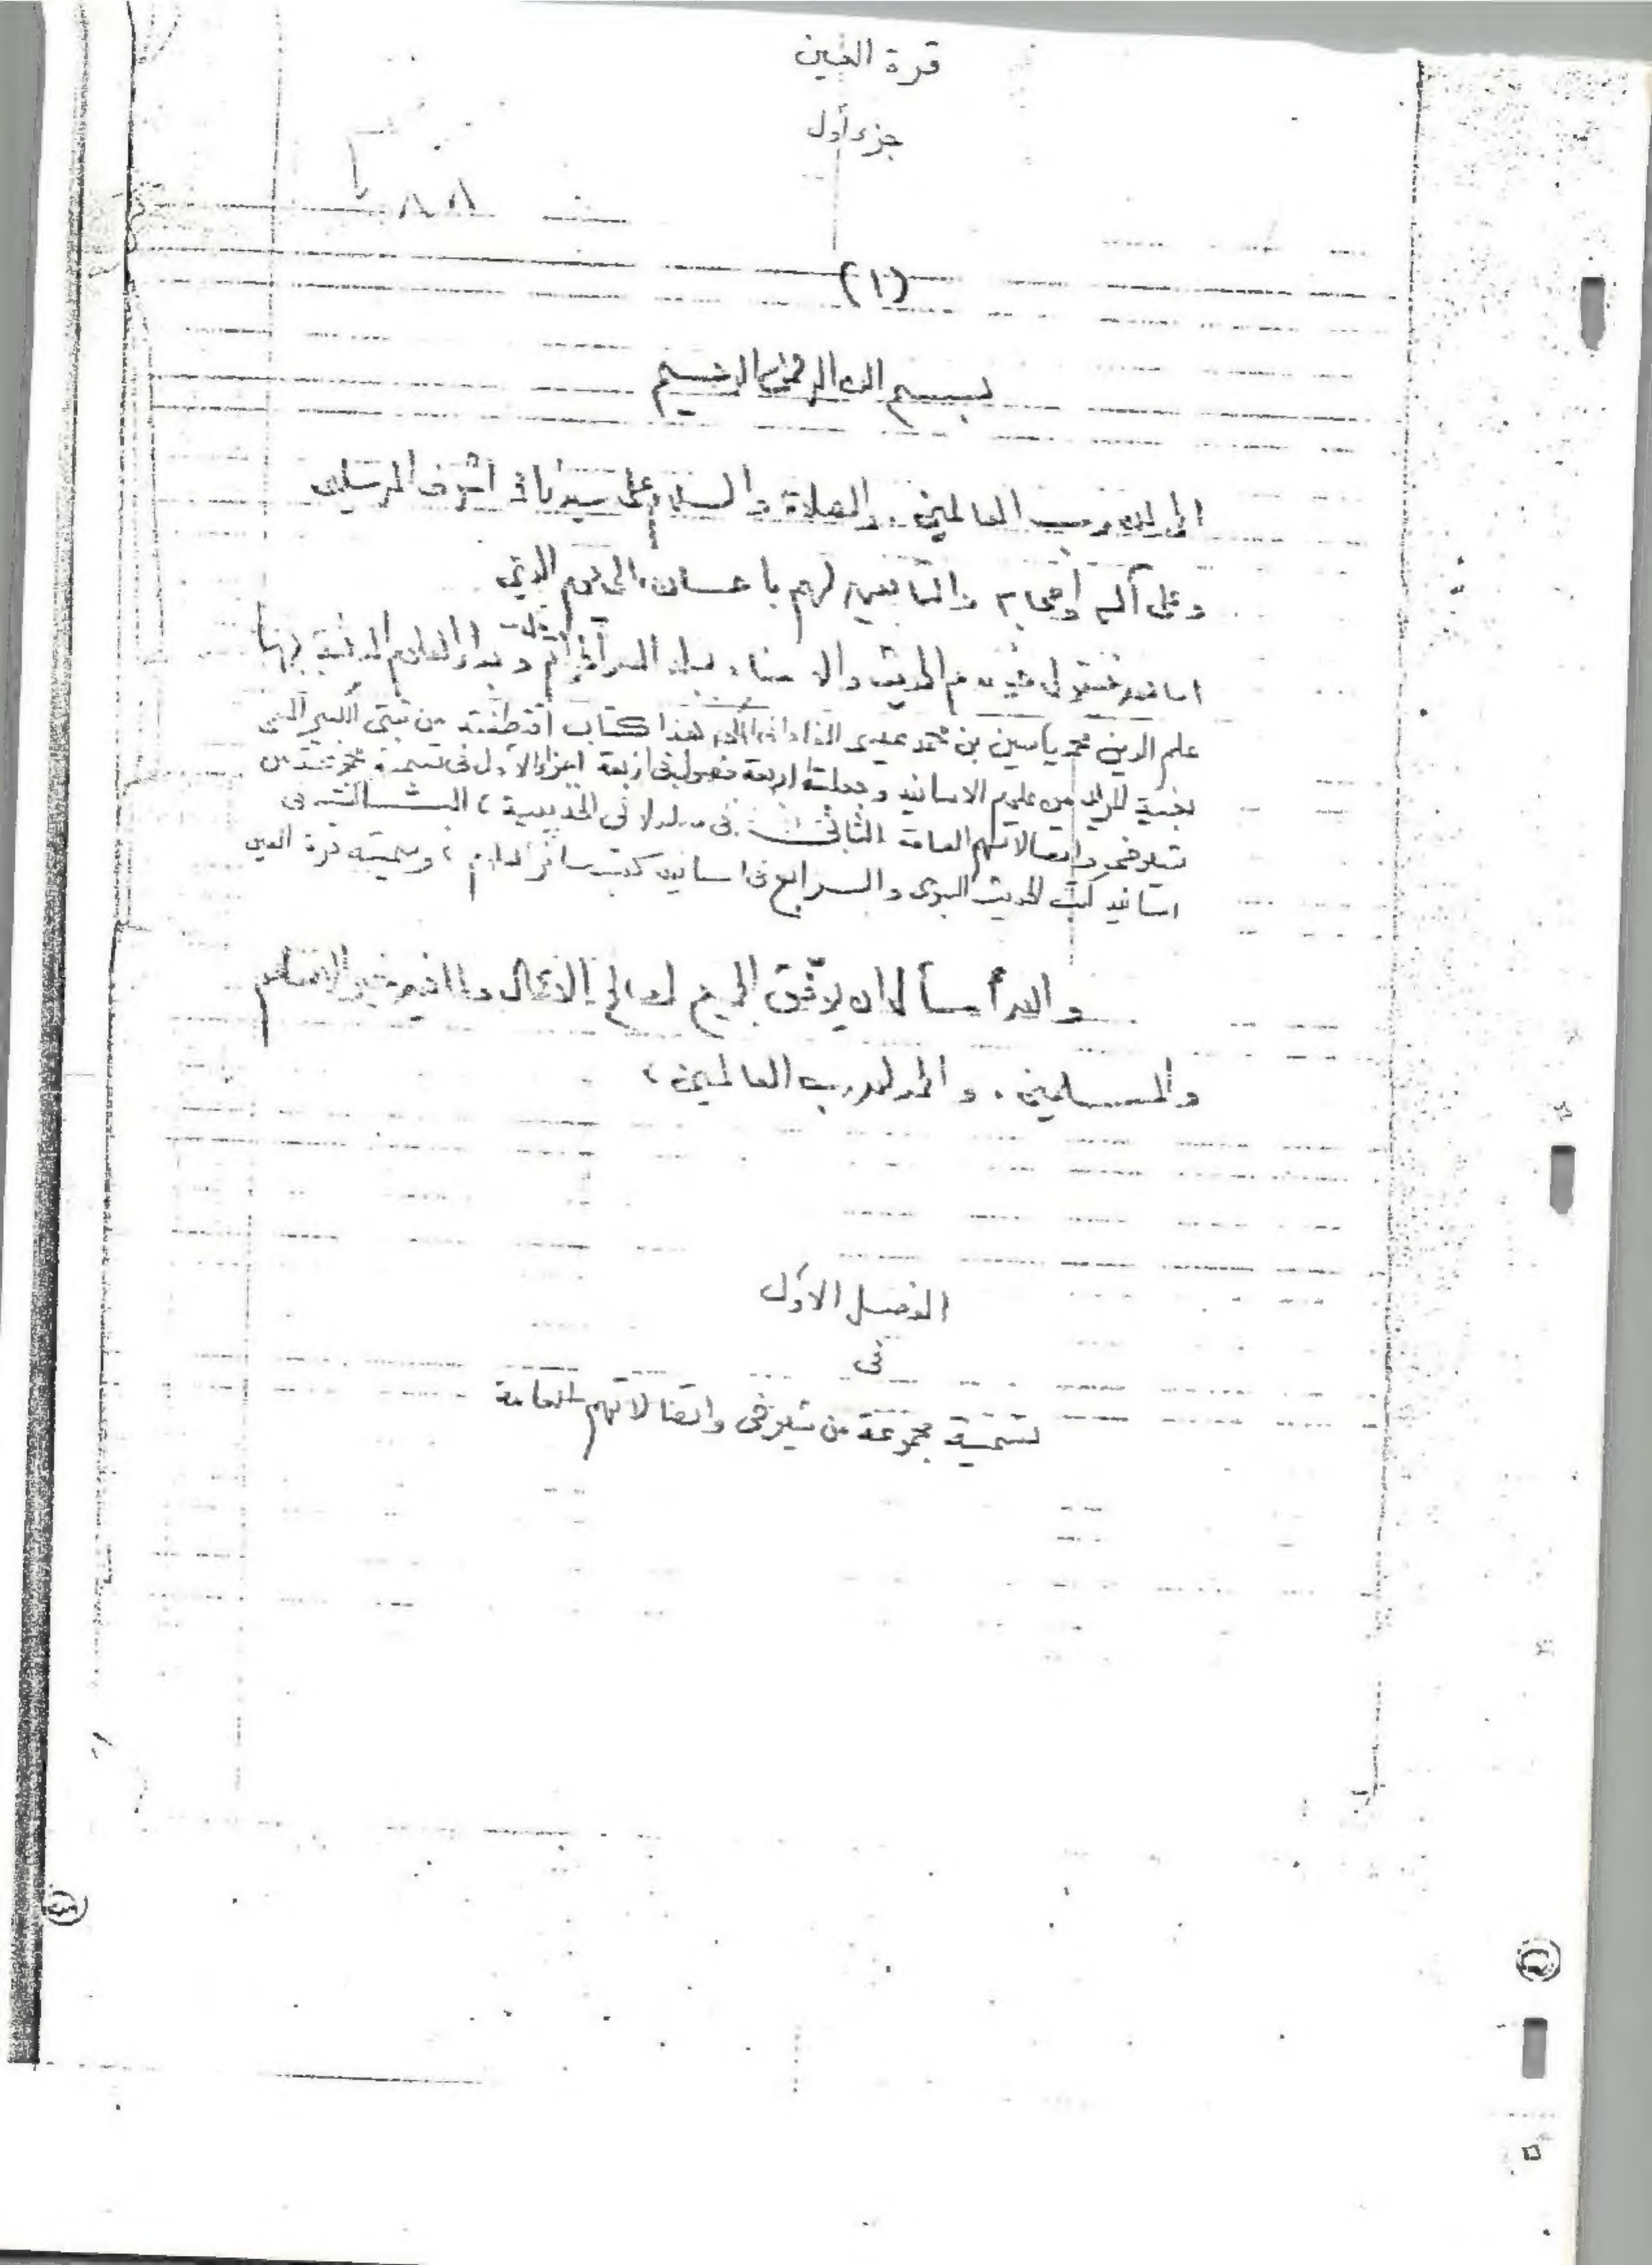 قرة العين
جزء أول
٨٨
(١)
بسم الله الرحمن الرحيم
الحمد لله رب العالمين . والصلاة والسلام على سيدنا أشرف المرسلين
وعلى آله وأصحابه والتابعين لهم بإحسان إلى يوم الدين
أما بعد فيقول علم الحديث والاسناد الحرام وبدار العلوم الدينية بها
علم الدين محمد ياسين بن محمد عيسى الفاداني المكي هذا كتاب اقتطفته من ثبتى الكبير المسمى
بغية المريد من علوم الاسانيد وجعلته أربعة فصول في أربعة اجزاء الأول في تسمية مجموعة من
شيوخي واتصالاتهم العامة الثاني في الحديثية ، الثالث في
اسانيد كتب الحديث النبوي والرابع في اسانيد كتب سائر العلوم ، وسميته قرة العين
والله أسأل ان يوفق الجميع لصالح الاعمال لما فيه خير الاسلام
والمسلمين . والحمد لله رب العالمين ،
الفصل الأول
في
تسمية مجموعة من شيوخي واتصالاتهم العامة